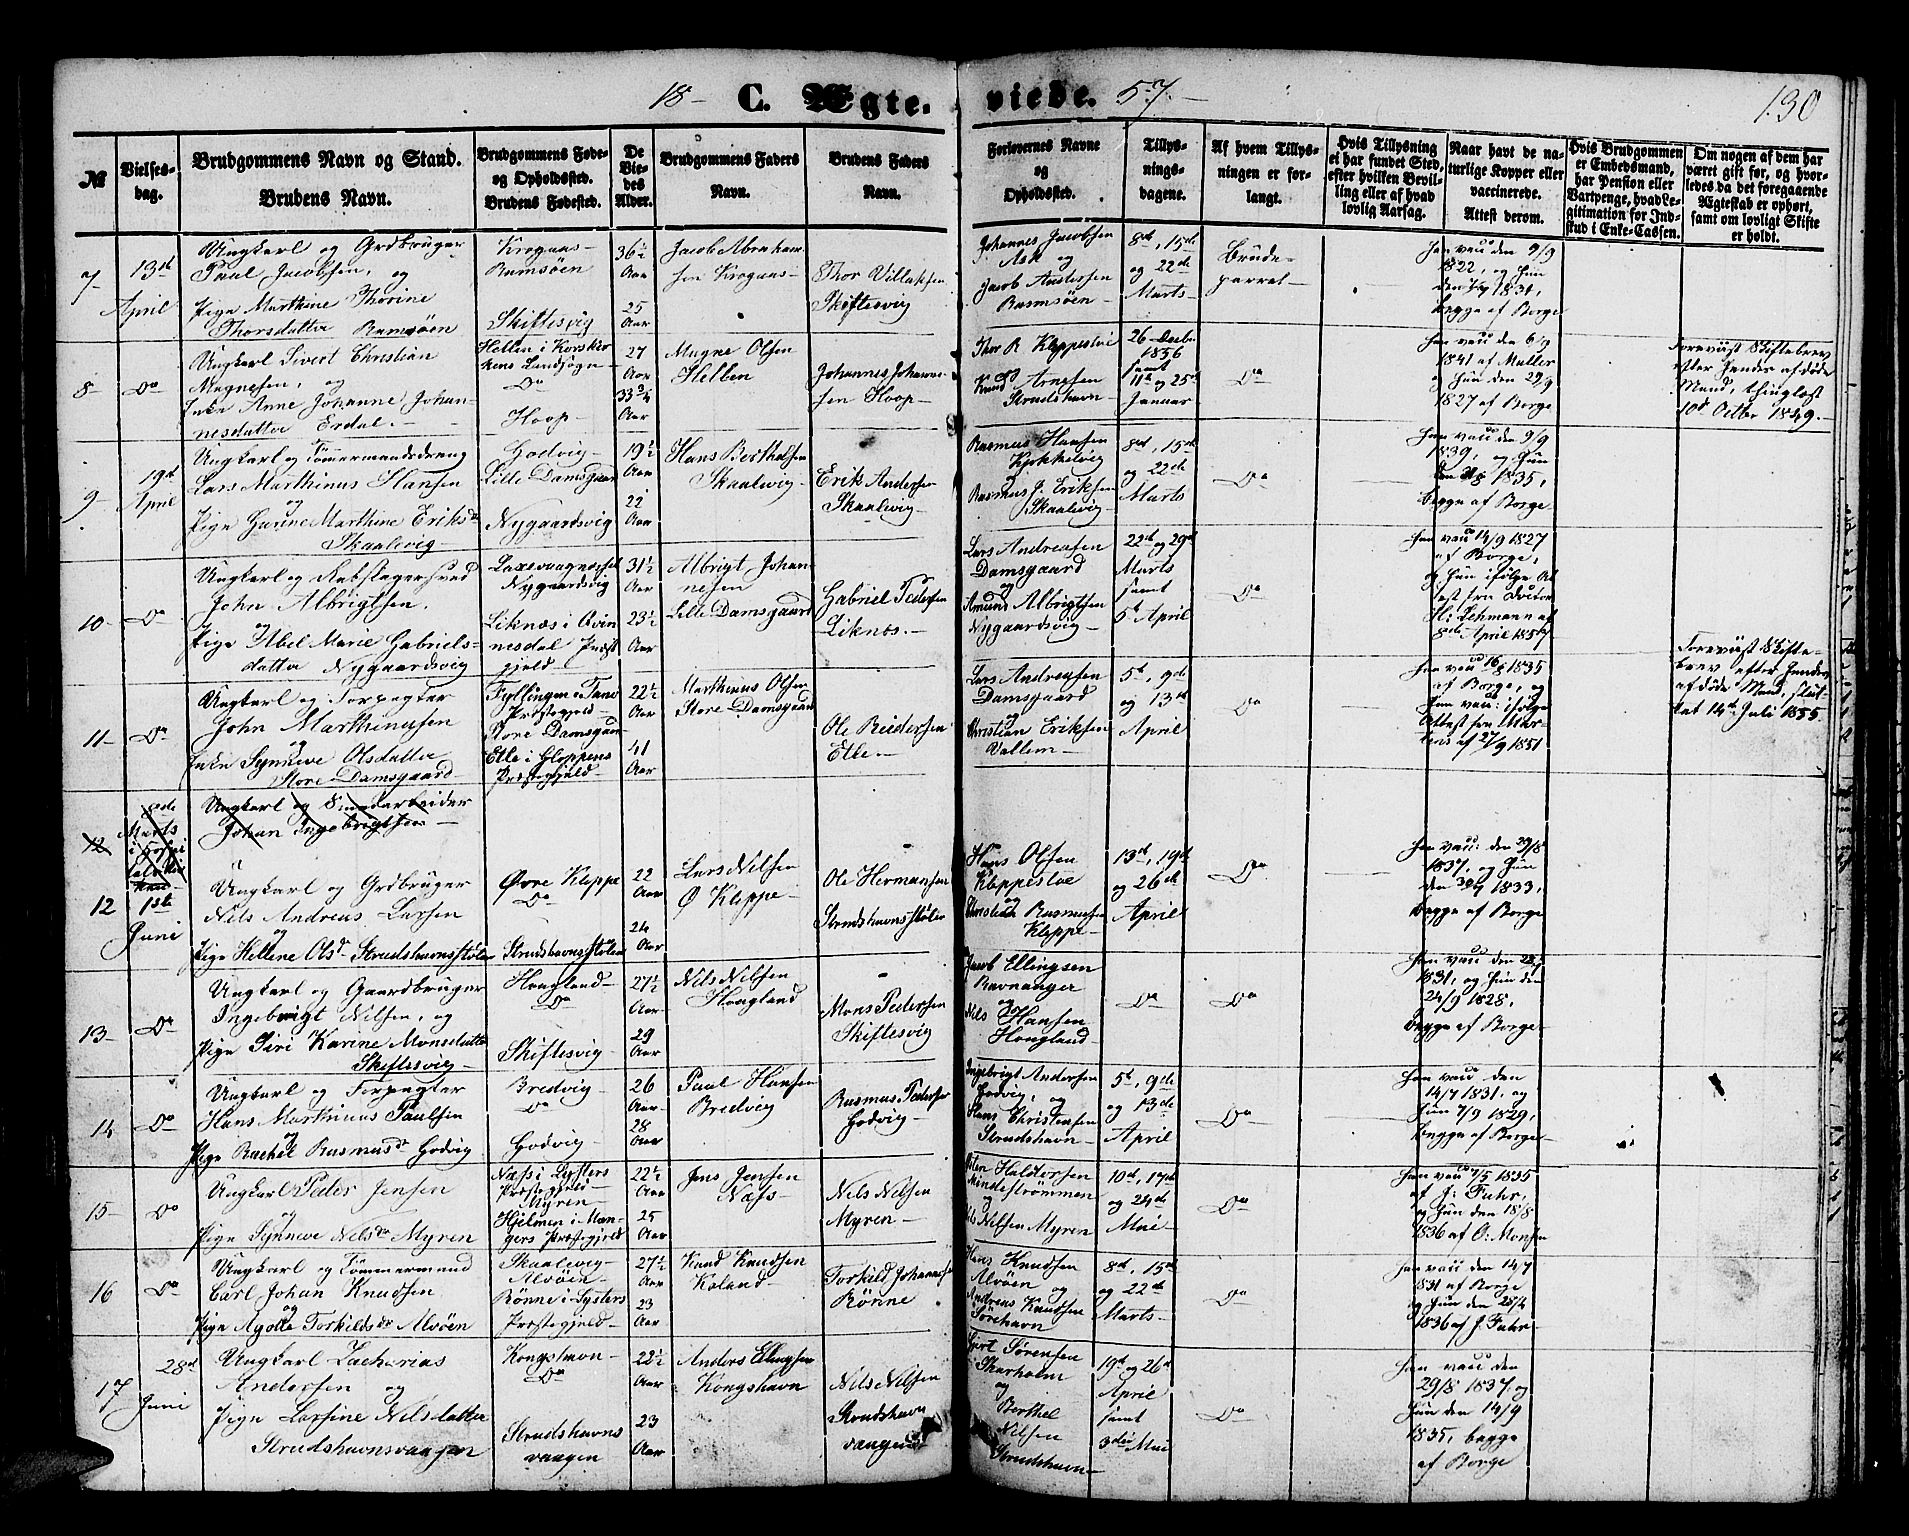 18- C. Ægte. viede. 57.-
130
№
Vielses-
dag.
Brudgommens Navn og Stand.
Brudens Navn.
Brudgommens Føde-
og Opholdssted.
Brudens Fødested.
De
Vie-
des
Alder.
Brudgommens Faders
Navn.
Brudens Faders
Navn.
Forlovernes Navne
og
Opholdssted.
Tillys-
nings-
dagene.
Af hvem Tillys-
ningen er for-
langt.
Hvis Tillysning
ei har fundet Sted,
efter hvilken Bevil-
ling eller af hvad
lovlig Aarsag.
Naar havt de na-
turlige Kopper eller
vaccinerede.
Attest derom.
Hvis Brudgommen
er Embedsmand,
har Pension eller
Vartpenge, hvad Le-
gitimation for Ind-
skud i Enke-Cassen.
Om nogen af dem har
været gift før, og hvor-
ledes da det foregaaende
Ægteskab er ophørt,
samt om lovligt Skifte
er holdt.
7-
13de
April
Ungkarl og Grdbruger
Paul Jacobsen,
og
Pige Marthine Thorine
Thorsdatter Ramsöen
Krogaas-
Ramsöen
Skiftesvig
36½
Aar
25
Aar
Jacob Abraham-
sen Krogaas-
Thor Villaksen
Skiftesvig
Johannes Jacobsen
Ask og
Jacob Andersen
Ramsöen-
8de, 15de
og 22de
Marts-
Brude-
parret-
Han vacc: den 9/9
1822, og hun
1831,
begge af Borge
8-
Do
Ungkarl Sivert Christian
Magnesen, og
Enke Anne Johanne Johan-
nesdatter Erdal.-
Hellen i Korskir-
kens Landsogn-
Do
Hoop-
27
Aar
33¾
Aar
Magne Olsen
Hellen
Johannes Johanne-
sen Hoop-
Thor R Kleppestøe
og
Knud Arnesen
Strudshavn-
26 Decbr
1856
samt
11te og 25de
Januar
Do
Han vacc: den 6/9
1841 af Muller
og hun den 29/9
1827 af Borge
Foreviist Skiftebrev
efter hendes afdøde
Mand, thinglæst
10de Octbr 1849.
9-
19de
April
Ungkarl og Tömmermandsdreng
Lars Marthinus Hansen
og
Pige Marthine Eriksdr
Skaalevig-
Godvig-
Lille Damsgaard
Nygaardsvig
19½
Aar
22
Aar
Hans Berthelsen
Skaalevig-
Erik Andersen
Skaalevig-
Rasmus Hansen
Kjøkkelvig
og
Rasmus J. Eriksen
Skaalevig
8de, 15de
og 22de
Marts
Do
Han vacc: den 9/9
1839, og hun
1835,
begge af Borge
10-
Do
Ungkarl og Rebslagersvend
John Albrigtsen.
og
Pige Abel Marie Gabriels-
datter Nygaardsvig
Laxevaagnesset
Nygaardsvig
Liknæs i Qvin
nesdal Præst
gjeld-
31½
Aar
23½
Aar
Albrigt Johan-
nesen
Lille Damsgaard
Gabriel Pedersen
Liknæs.-
Lars Andreasen
Damsgaard
og
Amund Albrigtsen
Nygaardsvig-
22de og 29de
Marts
samt
5te April
Do
Han vacc 14/9 1827
af Borge,
og hun ifølge At
test fra Doctor
H: Lehmann af
8de April 1857
11-
Do
Ungkarl og Forpagter
John Marthinussen
og
Enke Synneve Olsdatter
Store Damsgaard-
Fyllingen i Fane
Præstegjeld-
Store Damsgaard
Elle i Gloppens
Præstegjeld-
22½
Aar
41
Aar
Marthinus Olsen
Store Damsgaard
Ole Redersen
Elle-
Lars Andreasen
Damsgaard
og
Christian Eriksen
Vallem-
5te, 9de
og 13de
April
Do
1835
af Borge, og
hun vacc: ifølge
Attest fra Mar-
tens af 27/9 1851
Foreviist Skifte-
brev efter hendes
afdøde Mand, slut-
tet 14de Juli 1855.
12
8de
Marts
Ungkarl og Smedarbeider
Johan Ingebrigtsen-
12
1ste
Juni
Ungkarl og Grdbruger
Nils Andreas Larsen
og
Pige Hellene Olsdr Strudshavnsstølen
Øvre Kleppe
Do
Strudshavnsstølen
22
Aar
24
Aar
Lars Nilsen
Ø Kleppe-
Ole Hermansen
Strudshavnsstølen
Hans Olsen
Kleppestøe
og
Christian Rasmussen
Kleppe-
13de, 19de
og 26de
April
Do
Han vacc: den 29/8
1837, og hun
1833,
begge af Borge
13-
Do
Ungkarl og Gaardbruger
Ingebrigt Nilsen, og
Pige Siri Karine Monsdatter
Skiftesvig-
Hougland-
Do
Skiftesvig-
27½
Aar-
29
Aar
Nils Nilsen
Hougland
Mons Pedersen
Skiftesvig
Jacob Ellingsen
Ravnanger
og
Nils Hansen
Hougland-
Do
Do
Han vacc den
1831, og hun den
24/9 1828,
begge af Borge-
14
Do
Ungkarl og Forpagter
Hans Marthinus Paulsen
og
Pige Rachel Rasmusdr Godvig
Bredvig-
Do
Godvig-
26
Aar-
28
Aar
Paul Hansen
Bredvig
Rasmus Pedersen
Godvig
Ingebrigt Andersen
Godvig, og
Hans Christensen
Strudshavn-
5te, 9de
og 13de
April
Do
Han vacc den
14/7 1831, og
hun 7/9 1829,
begge af Borge-
15-
Do
Ungkarl Peder Jensen
og
Pige Synneve Nilsdr Myren
Næss i Lysters
Præstegjeld-
Myren-
Hjelmen i Man-
gers Præstegjeld
22½
Aar
25
Aar
Jens Jensen
Næss-
Nils Nilsen
Myren-
Haldorsen
Mindeströmmen
og
Nilsen Myren
10de, 17de
og 24de
Mai-
Do
Han vacc 7/5 1835
af J: Fuhr,
og hun den 18/8
1836 af O: Monsen
16
Do
Ungkarl og Tömmermand
Carl Johan Knudsen
og
Pige Agatte Torkildsdr Alvöen
Skaalevig-
Alvöen-
Rönne i Lysters
Præstegjeld-
27½
Aar
23
Aar
Knud Knudsen
Koland-
Torkild Johannesen
Rönne
Hans Knudsen
Alvöen og
Andreas Knudsen
Sörehavn
8de, 15de
og 22de
Marts-
Do
Han vacc den 14/7
1831 af Borge
og hun den 25/4
1836 af J. Fuhr-
17
28de
Juni
Ungkarl Zacharias
Andersen og
Pige Larsine Nilsdatter
Strudshavnsvaagen
Kongshavn-
Do
Strudshavns
vaagen
22½
Aar
23
Aar
Anders Ellingsen
Kongshavn
Nils Nilsen
Strudshavn
vaagen
Sjurt Sörensen
Skarholm
og
Berthel
Nilsen
Strudshavn-
19de og 26de
April
samt
3die Mai
Do
Han vacc den
29/8 1837, og
hun den 14/9
1835, begge
af Borge